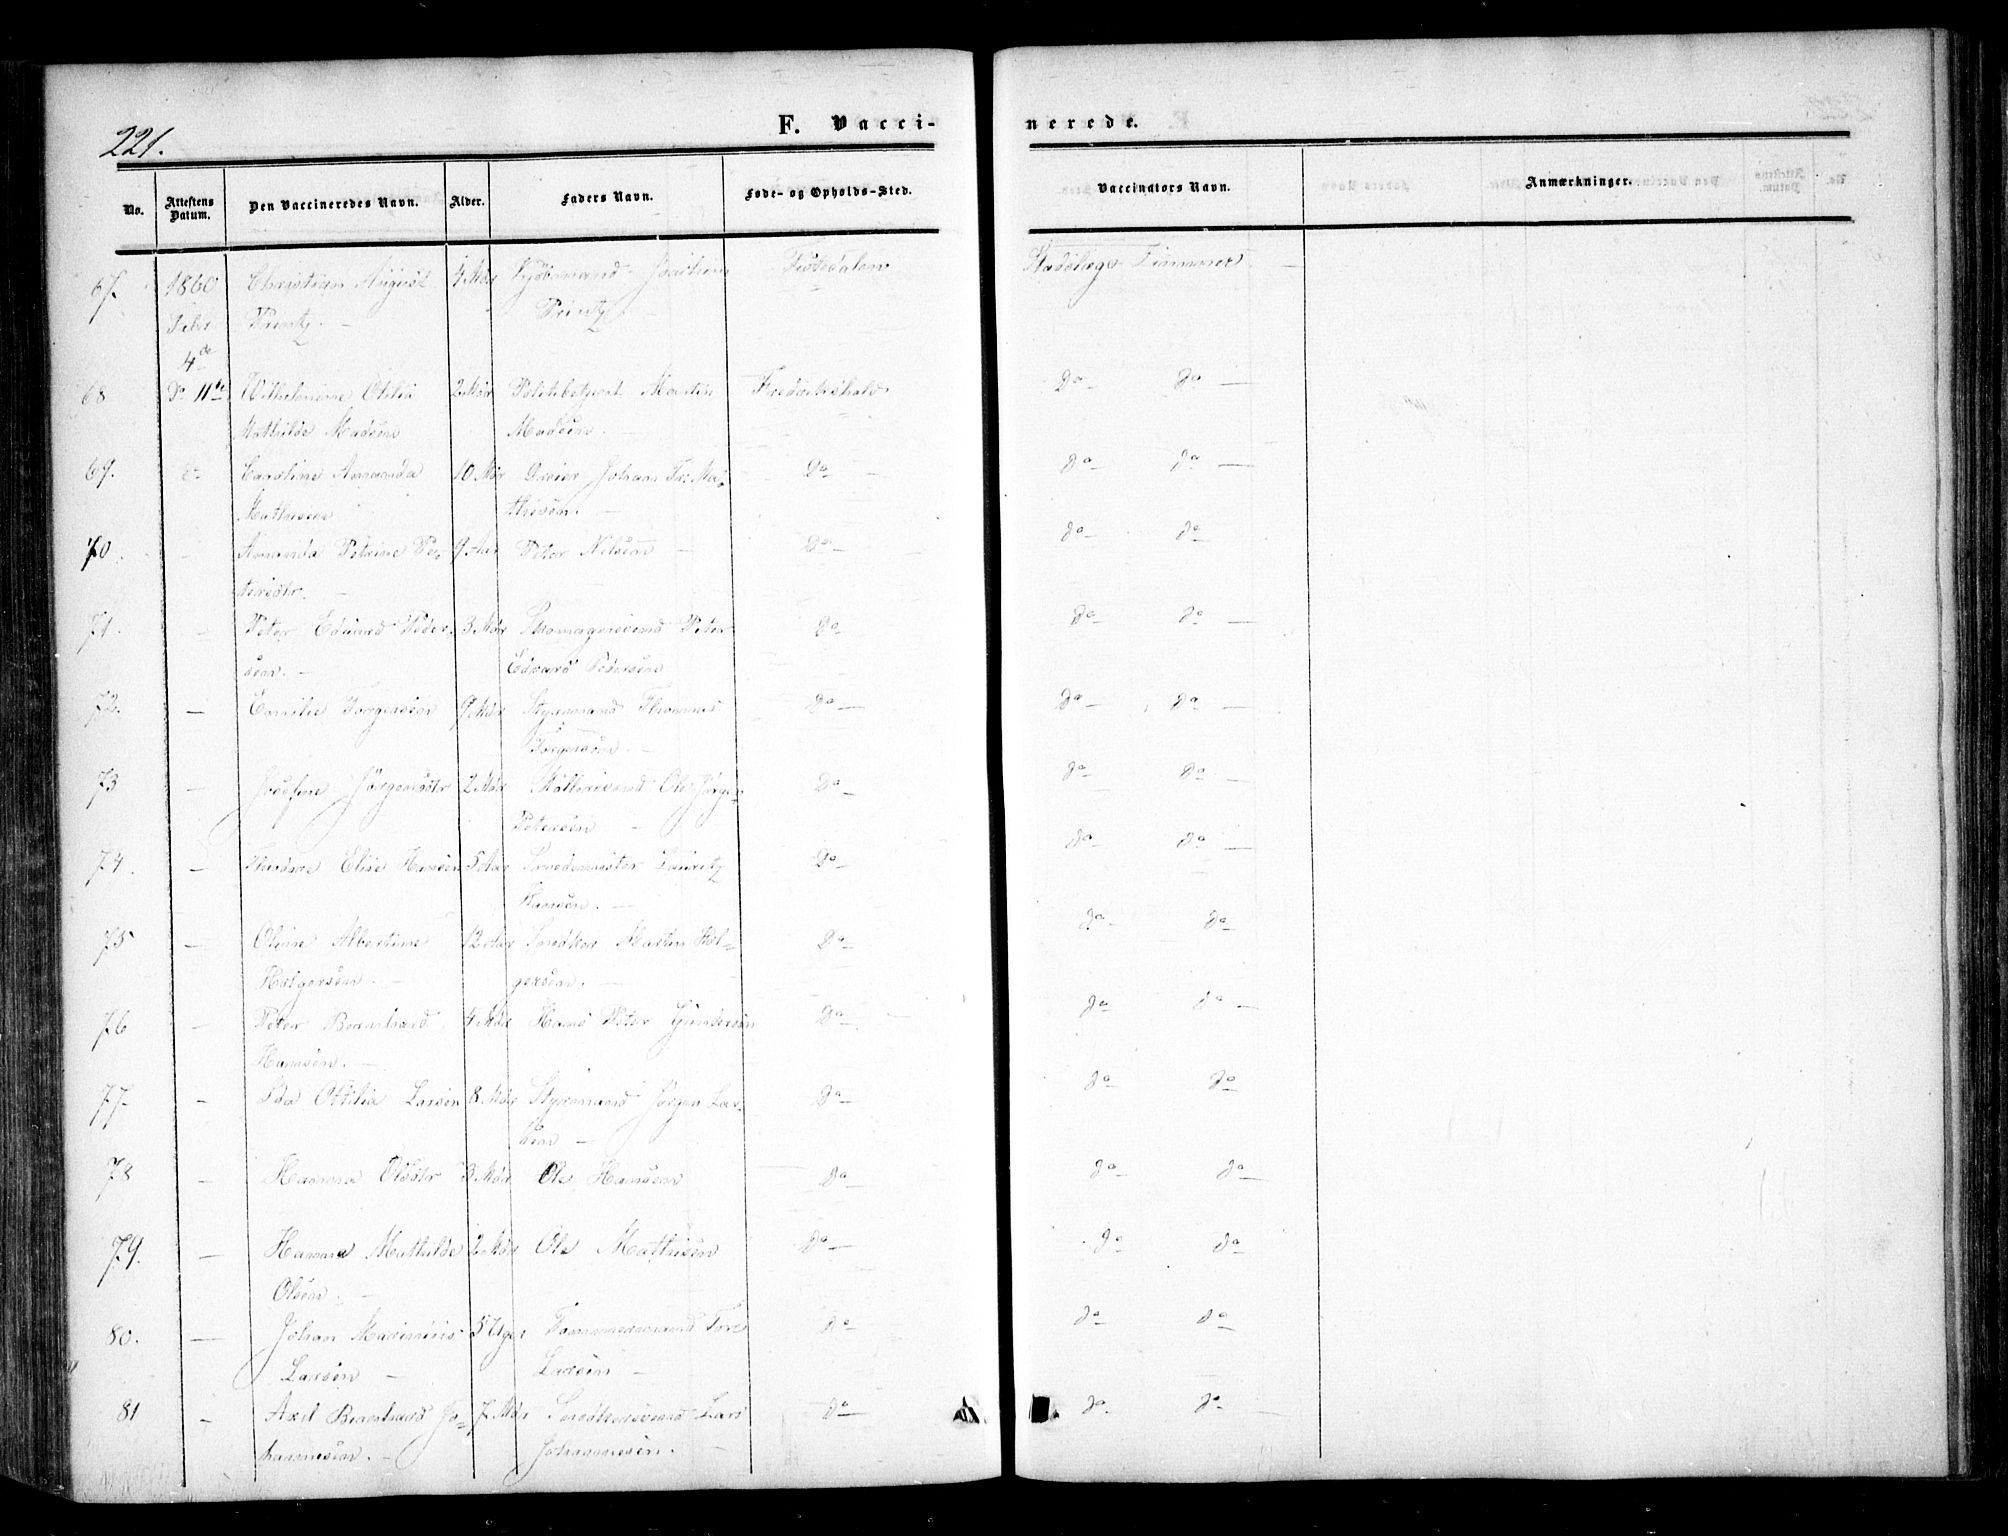 221.
F. Vacci-
nerede.
No. Attestens Datum. Den Vaccineredes Navn. Alder. Faders Navn. Føde- og Opholds-Sted. Vaccinators Navn. Anmærkninger.
67. 1860 Christian August 4 Mdr Kjöbmand Tistedalen Stadslæge Timmer —
Febr Printz. — Printz —
4de
68 Do 11te Wilhelmine Otilia 2 Mdr Politibetjent Martin Fredrikshald Do Do —
Mathilde Madsen Madsen. —
69. Caroline Amanda 10 Mdr Dreier Johan Fr: Ma- Do — do do —
Mathisen thisen. —
70. — Amanda Petrine Pe- 9 Aar Peter Nilsen — Do — do do
tersdtr. —
71. — Peter Edvard Peder- 3 Mdr Skomagersvend Peter Do do do —
sen. — Edvard Pedersen
72. — Emilie Torgersen 9 Mdr Styrmand Thomas Do — do do —
Torgersen. —
73 — Josefine Jörgensdtr 2 Mdr Möllersvend Ole Jörgen Do do do —
Petersen —
74. — Elise Hansen 5 Aar Smedemester Lauritz Do do do —
Hansen. —
75 — Oline Albertine 12 Aar Snedker Martin Hol- Do do do
Holgersen. — gersen. —
76 — Peter Bernhard 4 Mdr Hans Peter Gundersen Do — do do —
Hansen. —
77 — Ida Ottilia Larsen 8 Mdr Styrmand Jörgen Lar- Do do do
sen —
78 — Hanna Olsdtr 3 Mdr Ole Hansen Do do do
79. — Hanna Mathilde 2 Mdr Ole Mathisen Do — do do
Olsen. —
80. — Johan Marinius 5 Uger Tømmermand Tore Do — do do
Larsen — Larsen —
81 — Axel Bernhard Jo- 7 Mdr Snedkersvend Lars Do do do —
hannesen. — Johannesen. —